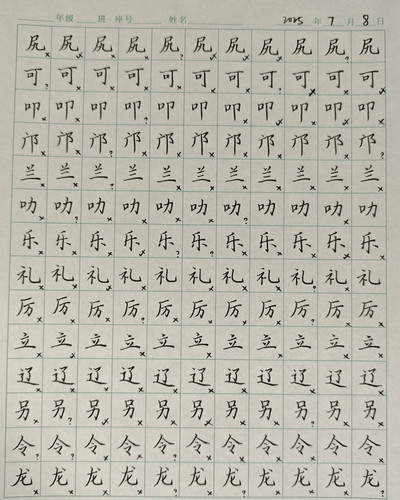 年级 班 座号 姓名 2025 年 7 月 8 日
尻 尻 尻 尻 尻 尻 尻 尻 尻 尻 尻
可 可 可 可 可 可 可 可 可 可 可
叩 叩 叩 叩 叩 叩 叩 叩 叩 叩 叩
邝 邝 邝 邝 邝 邝 邝 邝 邝 邝 邝
兰 兰 兰 兰 兰 兰 兰 兰 兰 兰 兰
叻 叻 叻 叻 叻 叻 叻 叻 叻 叻 叻
乐 乐 乐 乐 乐 乐 乐 乐 乐 乐 乐
礼 礼 礼 礼 礼 礼 礼 礼 礼 礼 礼
厉 厉 厉 厉 厉 厉 厉 厉 厉 厉 厉
立 立 立 立 立 立 立 立 立 立 立
辽 辽 辽 辽 辽 辽 辽 辽 辽 辽 辽
另 另 另 另 另 另 另 另 另 另 另
令 令 令 令 令 令 令 令 令 令 令
龙 龙 龙 龙 龙 龙 龙 龙 龙 龙 龙